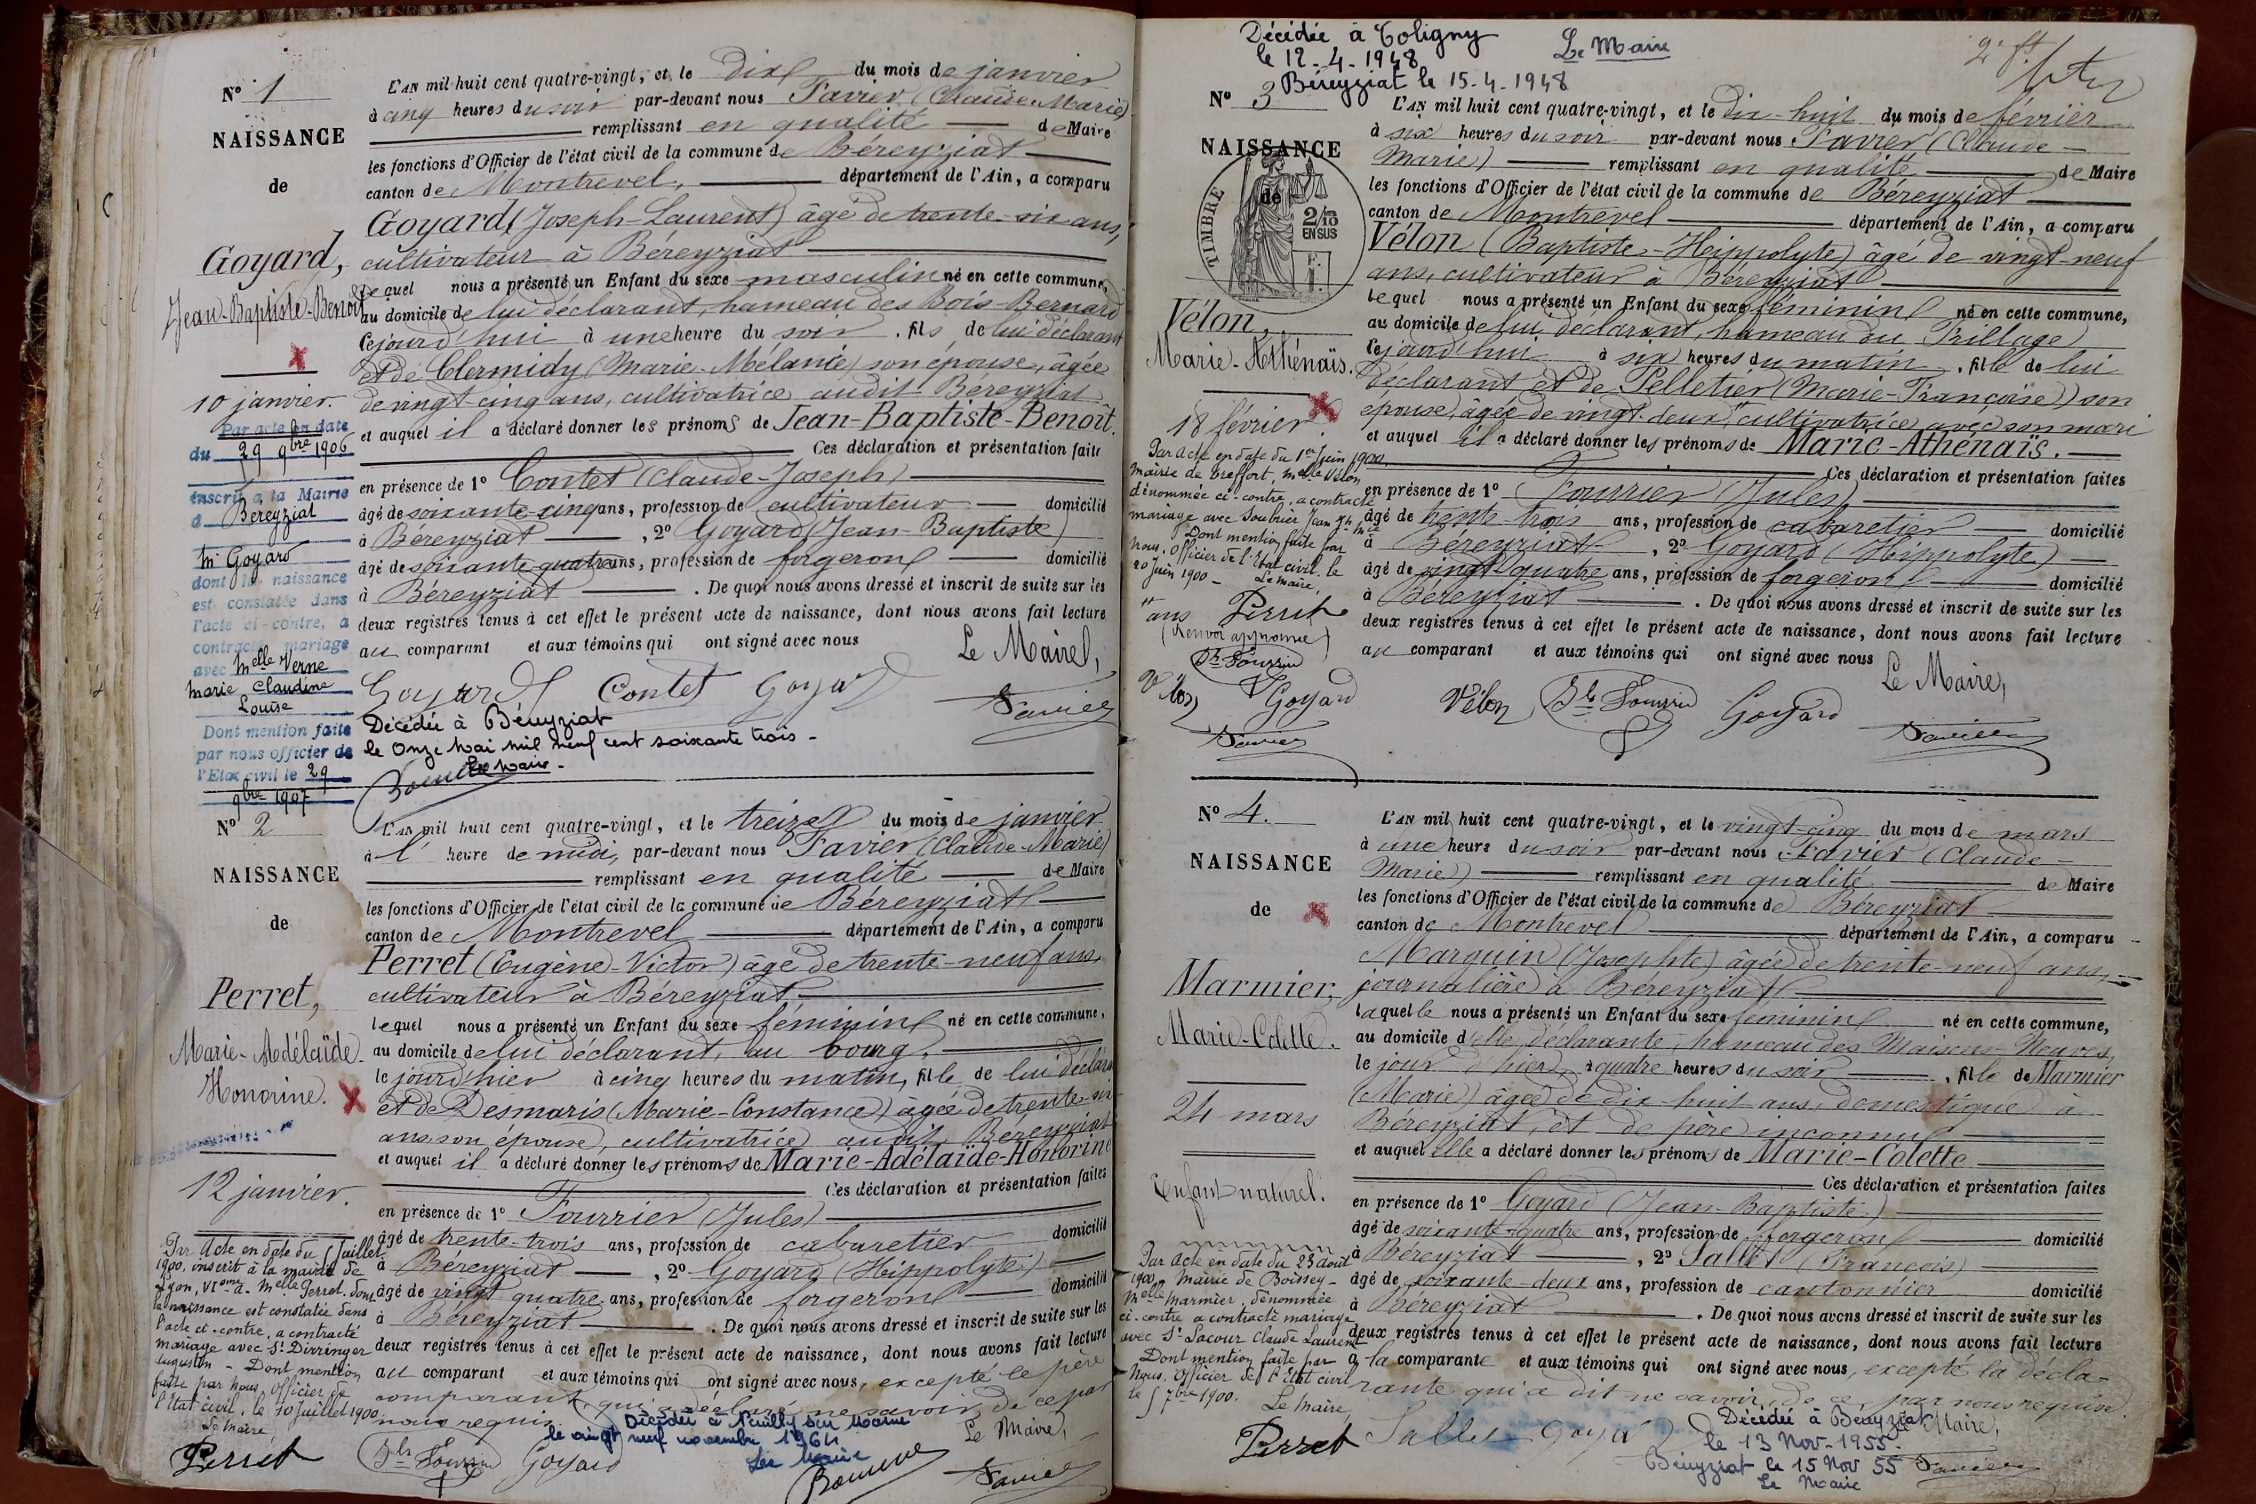 N° 1
NAISSANCE
de
Goyard,
Jean-Baptiste-Benoît
10 janvier.
Par acte en date
du 29 9bre 1906
inscrit à la Mairie
d Béreyziat
Mr Goyard
dont la naissance
est constatée dans
l'acte ci-contre, a
contracté mariage
avec Melle Verne
marie Claudine
Louise
Dont mention faite
par nous officier de
l'Etat civil le 29
9bre 1907
L'AN mil huit cent quatre-vingt, et le dix du mois de janvier
à cinq heures du soir par-devant nous Favier (Claude-Marie)
remplissant en qualité de Maire
les fonctions d'Officier de l'état civil de la commune de Béreyziat
canton de Montrevel, département de l'Ain, a comparu
Goyard (Joseph-Laurent) âgé de trente-six ans,
cultivateur à Béreyziat
lequel nous a présenté un Enfant du sexe masculin né en cette commune,
au domicile de lui déclarant, hameau des Bois-Bernard
cejourd'hui à une heure du soir, fils de lui déclarant
et de Clermidy (Marie-Mélanie) son épouse, âgée
de vingt-cinq ans, cultivatrice audit Béreyziat
et auquel il a déclaré donner les prénoms de Jean-Baptiste-Benoît.
Ces déclaration et présentation faite
en présence de 1° Contet (Claude-Joseph)
âgé de soixante-cinq ans, profession de cultivateur domicilié
à Béreyziat, 2° Goyard (Jean-Baptiste)
âgé de soixante-quatre ans, profession de forgeron domicilié
à Béreyziat. De quoi nous avons dressé et inscrit de suite sur les
deux registres tenus à cet effet le présent acte de naissance, dont nous avons fait lecture
au comparant et aux témoins qui ont signé avec nous
Le Maire,
Goyard Contet Goyard
Favier
Décédée à Béreyziat
le Onze Mai mil neuf cent soixante trois -
Le Maire -
N° 2
NAISSANCE
de
Perret,
Marie-Adélaïde-
Honorine.
12 janvier.
Par Acte en date du 5 Juillet
1900, inscrit à la mairie de
Lyon, VIeme a. Melle Perret, dont
la naissance est constatée dans
l'acte ci-contre, a contracté
mariage avec Sr Dirringer
Augustin - Dont mention
faite par nous, Officier de
l'Etat civil, le 10 Juillet 1900
Le Maire,
Perret
L'AN mil huit cent quatre-vingt, et le treize du mois de janvier
à l' heure de midi, par-devant nous Favier (Claude-Marie)
remplissant en qualité de Maire
les fonctions d'Officier de l'état civil de la commune de Béreyziat
canton de Montrevel département de l'Ain, a comparu
Perret (Eugène-Victor) âgé de trente-neuf ans,
cultivateur à Béreyziat,
lequel nous a présenté un Enfant du sexe féminin né en cette commune,
au domicile de lui déclarant, au bourg,
le jour d'hier à cinq heures du matin, fille de lui déclara
et de Desmaris (Marie-Constance) âgée de trente-six
ans, son épouse, cultivatrice audit Béreyziat
et auquel il a déclaré donner les prénoms de Marie-Adélaïde-Honorine
Ces déclaration et présentation faites
en présence de 1° Fourrier (Jules)
âgé de trente-trois ans, profession de cabaretier domicilié
à Béreyziat, 2° Goyard (Hippolyte)
âgé de vingt quatre ans, profession de forgeron domicilié
à Béreyziat. De quoi nous avons dressé et inscrit de suite sur les
deux registres tenus à cet effet le présent acte de naissance, dont nous avons fait lecture
au comparant et aux témoins qui ont signé avec nous, excepté le père
comparant, qui a déclaré ne savoir de ce par
nous requis.
Décédée à Neuilly sur Marne
le vingt neuf novembre 1964
Le Maire
Le Maire,
Jles Fourrier Goyard
Favier
Décédée à Coligny
le 12-4-1948
Béreyziat le 15-4-1948
Le Maire
2e ft
N° 3
NAISSANCE
de
TIMBRE
2/10
EN SUS
Vélon,
Marie-Athénaïs.
18 février.
Par Acte en date du 1er Juin 1900,
mairie de Treffort, Melle Vélon
dénommée ci-contre, a contracté
mariage avec Soubrier Jean
Dont mention faite par
Nous, Officier de l'Etat civil, le
20 Juin 1900 -
Le Maire,
Perret
" ans
(Renvoi approuvé)
Jles Fourrier
Vélon Goyard
Favier
L'AN mil huit cent quatre-vingt, et le dix-huit du mois de février
à six heures du soir par-devant nous Favier (Claude-
Marie) remplissant en qualité de Maire
les fonctions d'Officier de l'état civil de la commune de Béreyziat
canton de Montrevel département de l'Ain, a comparu
Vélon (Baptiste-Hippolyte) âgé de vingt-neuf
ans, cultivateur à Béreyziat
lequel nous a présenté un Enfant du sexe féminin né en cette commune,
au domicile de lui déclarant, hameau du Trillage
cejourd'hui à six heures du matin, fille de lui
déclarant et de Pelletier (Marie-Françoise) son
épouse, âgée de vingt-deux " cultivatrice avec son mari
et auquel il a déclaré donner les prénoms de Marie-Athénaïs.
Ces déclaration et présentation faites
en présence de 1° Fourrier (Jules)
âgé de trente-trois ans, profession de cabaretier domicilié
à Béreyziat, 2° Goyard (Hippolyte)
âgé de vingt-quatre ans, profession de forgeron domicilié
à Béreyziat. De quoi nous avons dressé et inscrit de suite sur les
deux registres tenus à cet effet le présent acte de naissance, dont nous avons fait lecture
au comparant et aux témoins qui ont signé avec nous
Le Maire,
Vélon Jles Fourrier Goyard
Favier
N° 4.
NAISSANCE
de
Marmier,
Marie-Colette.
24 mars
Enfant naturel.
Par Acte en date du 23 Août
1900, Mairie de Boissey -
Melle Marmier, dénommée
ci-contre a contracté mariage
avec Sr Lacour Claude Laurent
Dont mention faite par
Nous, Officier de l'Etat civil
le 5 7bre 1900.
Le Maire,
Perret
L'AN mil huit cent quatre-vingt, et le vingt-cinq du mois de mars
à une heure du soir par-devant nous Favier (Claude-
Marie) remplissant en qualité de Maire
les fonctions d'Officier de l'état civil de la commune de Béreyziat
canton de Montrevel département de l'Ain, a comparu
Marguin (Josephte) âgée de trente-neuf ans,
journalière à Béreyziat
laquelle nous a présenté un Enfant du sexe féminin né en cette commune,
au domicile d'elle déclarante, hameau des Maisons-Neuves,
le jour d'hier, à quatre heures du soir, fille de Marmier
(Marie) âgée de dix-huit ans, domestique à
Béreyziat, et de père inconnu
et auquel elle a déclaré donner les prénoms de Marie-Colette
Ces déclaration et présentation faites
en présence de 1° Goyard (Jean-Baptiste)
âgé de soixante-quatre ans, profession de forgeron domicilié
à Béreyziat, 2° Sallet (François)
âgé de soixante-deux ans, profession de cantonnier domicilié
à Béreyziat. De quoi nous avons dressé et inscrit de suite sur les
deux registres tenus à cet effet le présent acte de naissance, dont nous avons fait lecture
à la comparante et aux témoins qui ont signé avec nous, excepté la décla-
rante qui a dit ne savoir, de ce, par nous requise.
Le Maire,
Sallet Goyard
Favier
Décédée à Béreyziat
le 13 Nov - 1955.
Béreyziat le 15 Nov 55
Le Maire